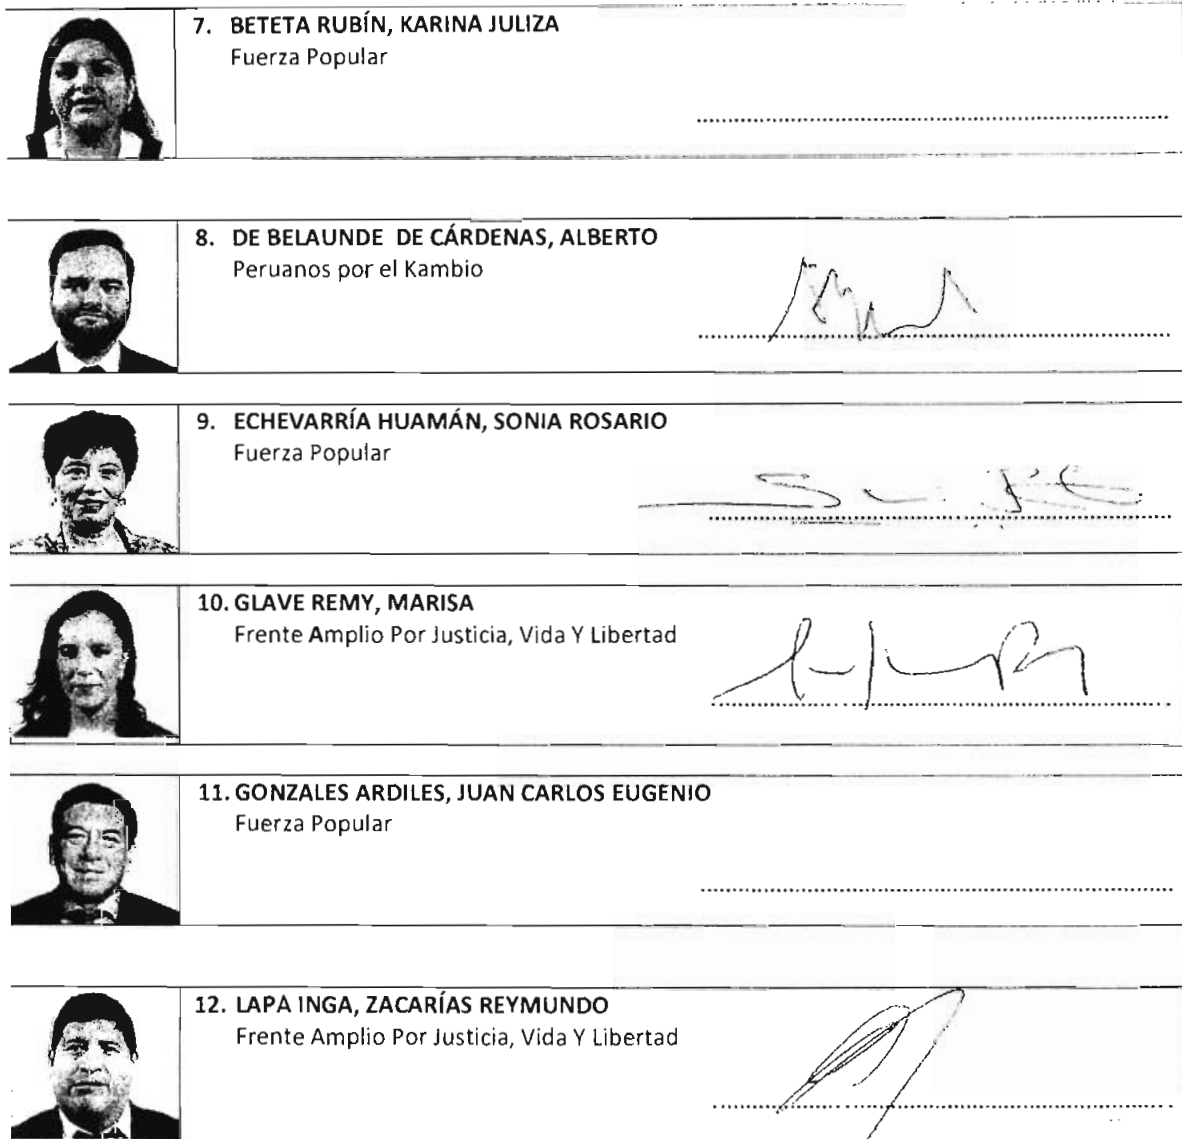 7. BETETA RUBÍN, KARINA JULIZA
Fuerza Popular
8. DE BELAUNDE DE CÁRDENAS, ALBERTO
Peruanos por el Kambio
9. ECHEVARRÍA HUAMÁN, SONIA ROSARIO
Fuerza Popular
10. GLAVE REMY, MARISA
Frente Amplio Por Justicia, Vida Y Libertad
11. GONZALES ARDILES, JUAN CARLOS EUGENIO
Fuerza Popular
12. LAPA INGA, ZACARÍAS REYMUNDO
Frente Amplio Por Justicia, Vida Y Libertad